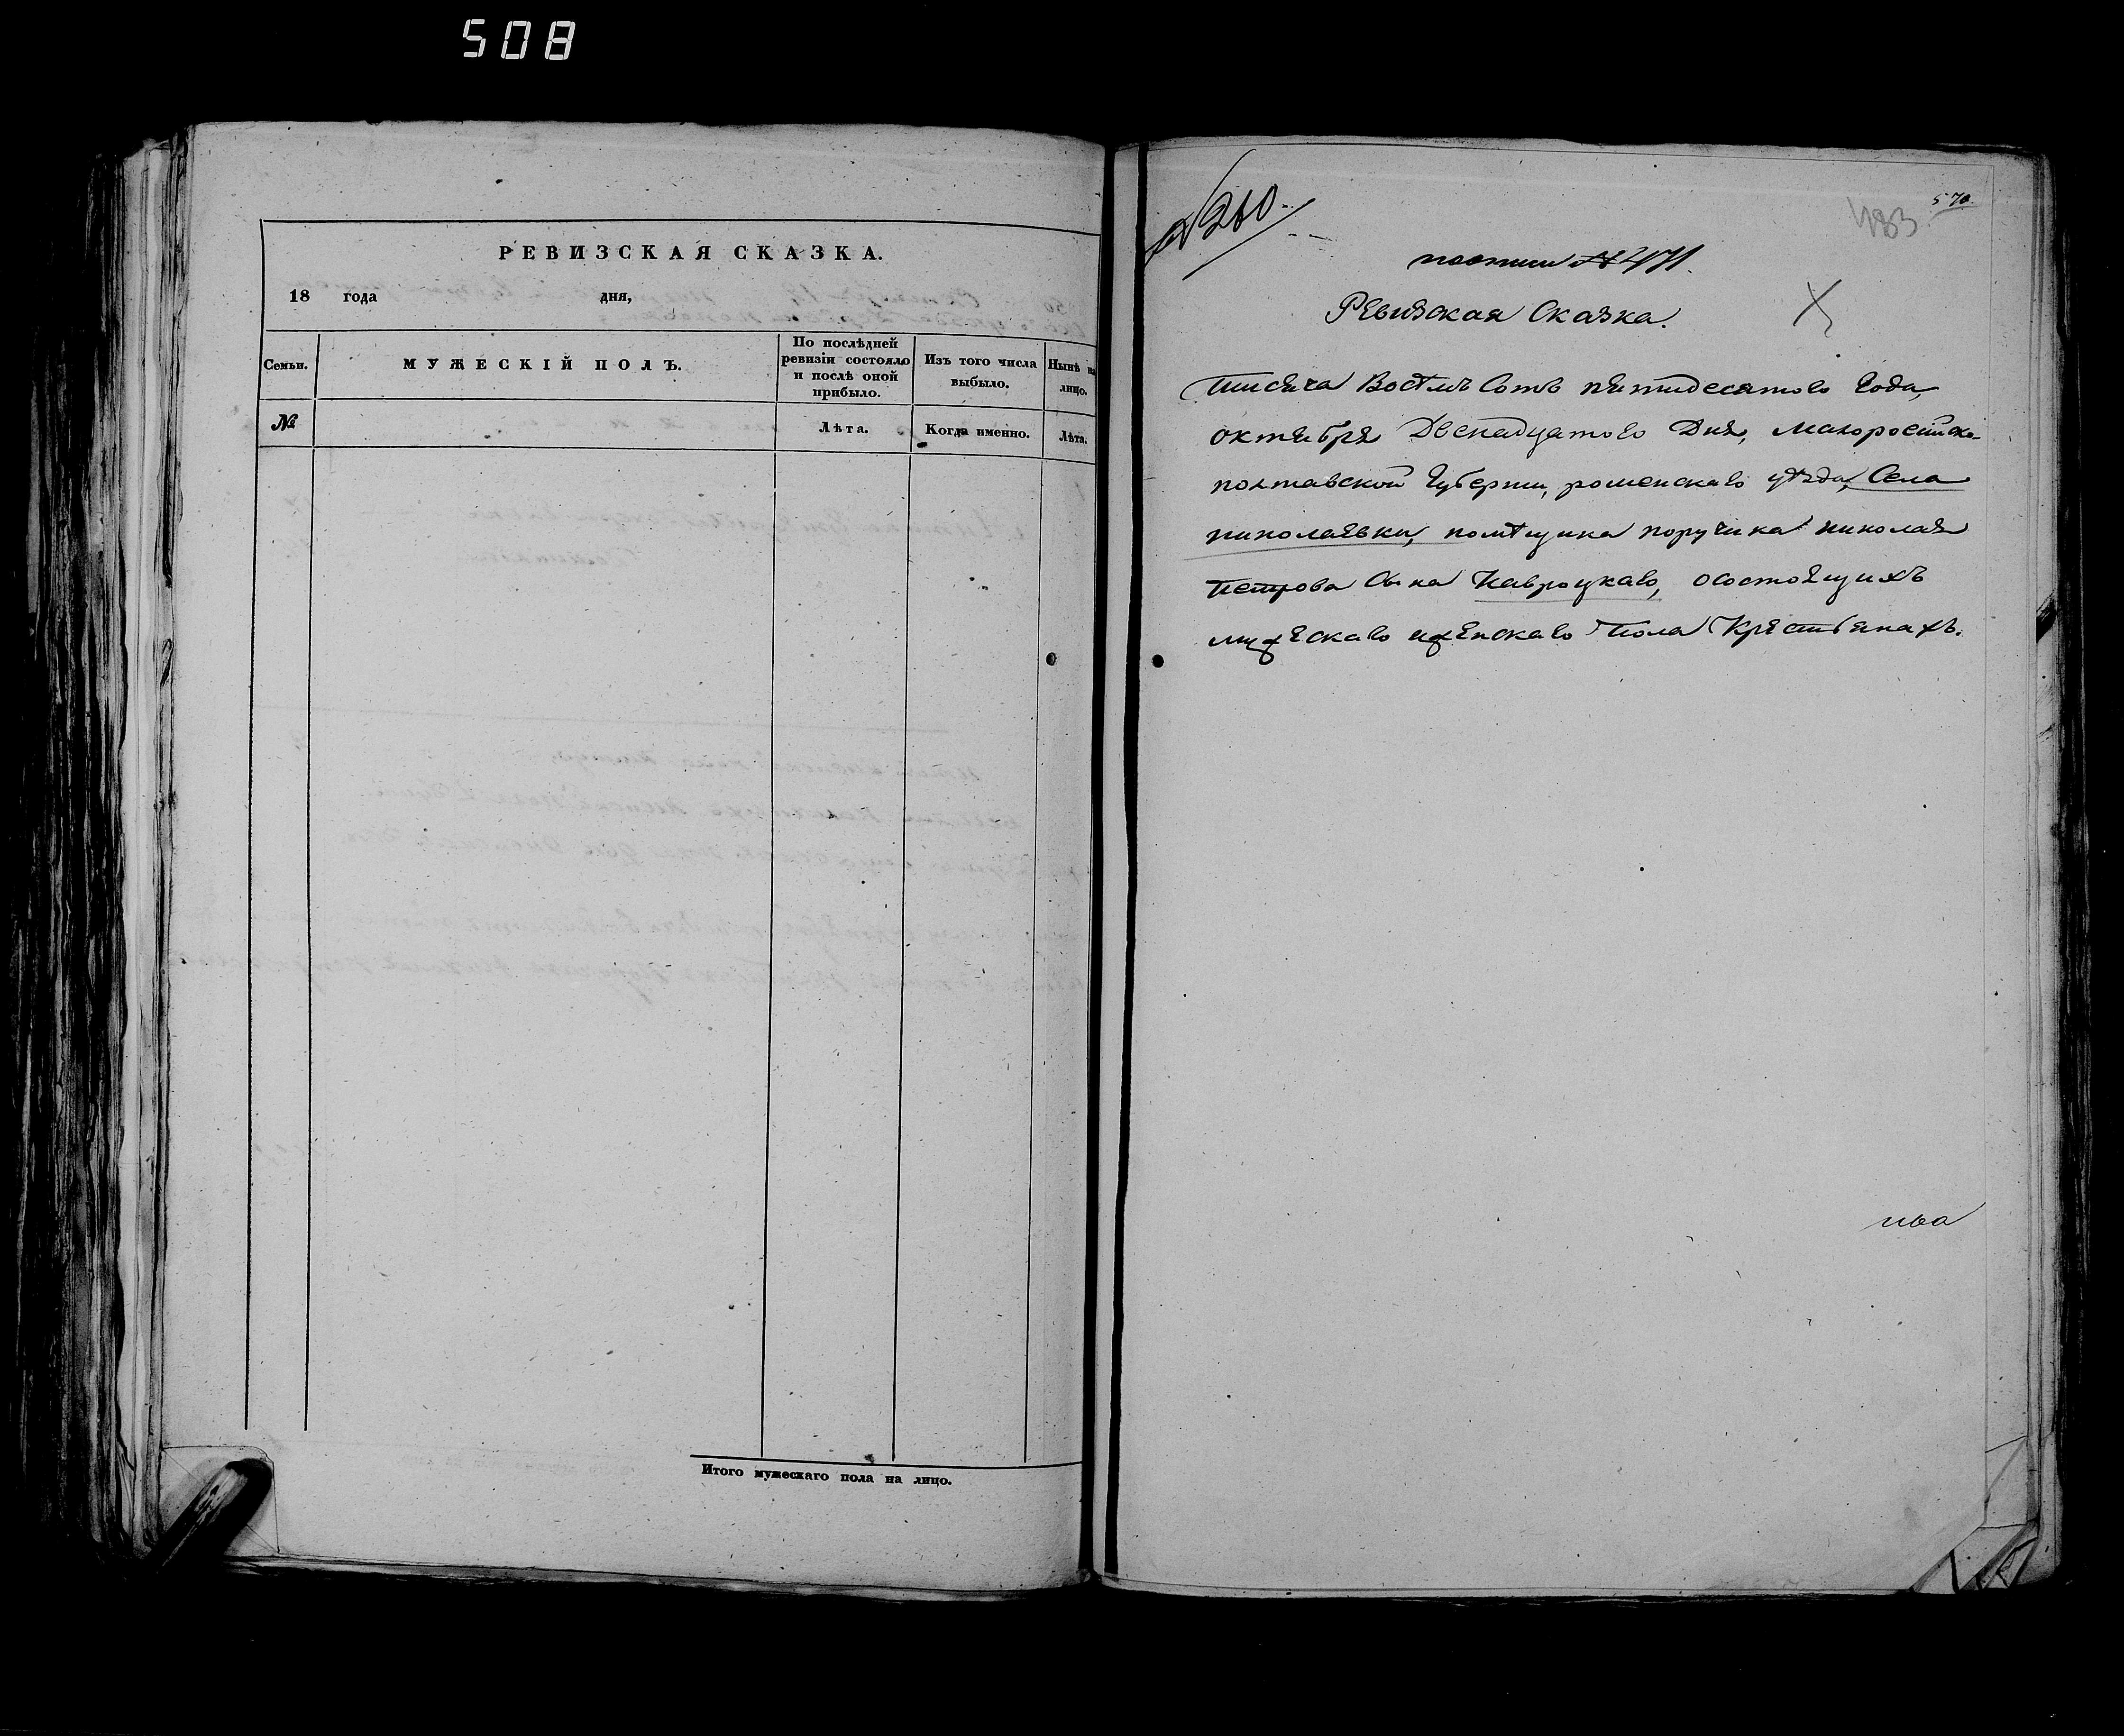 508
РЕВИЗСКАЯ СКАЗКА.
18 года дня,
Семьи. МУЖЕСКІЙ ПОЛЪ. По послѣдней ревизіи состояло и послѣ оной прибыло. Изъ того числа выбыло. Нынѣ на лицо.
№ Лѣта. Когда именно. Лѣта.
Итого мужескаго пола на лицо.
№ 260.
570.
483
№ 471.
Ревизская Сказка.
Тисяча Восѣмъ Сотъ пятидесятого Года,
октября Двенадцатого Дня, Малоросійско-
полтавской Губерніи, роменскаго уѣзда, Села
николаевки, помѣщика поручика николая
Петрова Сына Навроцкаго, осостоящихъ
мужескаго иженскаго Пола Крестьянахъ.